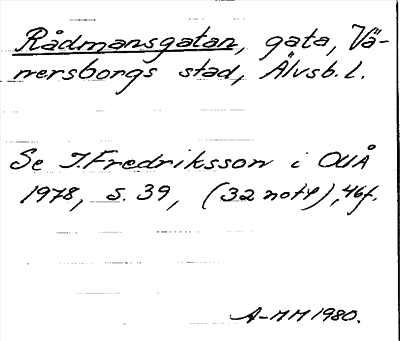 Rådmansgatan, gata, Vä-
nersborgs stad, Älvsb. l.
Se I. Fredriksson i OUÅ
1978, s. 39, (32 not 4), 46f.
A-MM 1980.